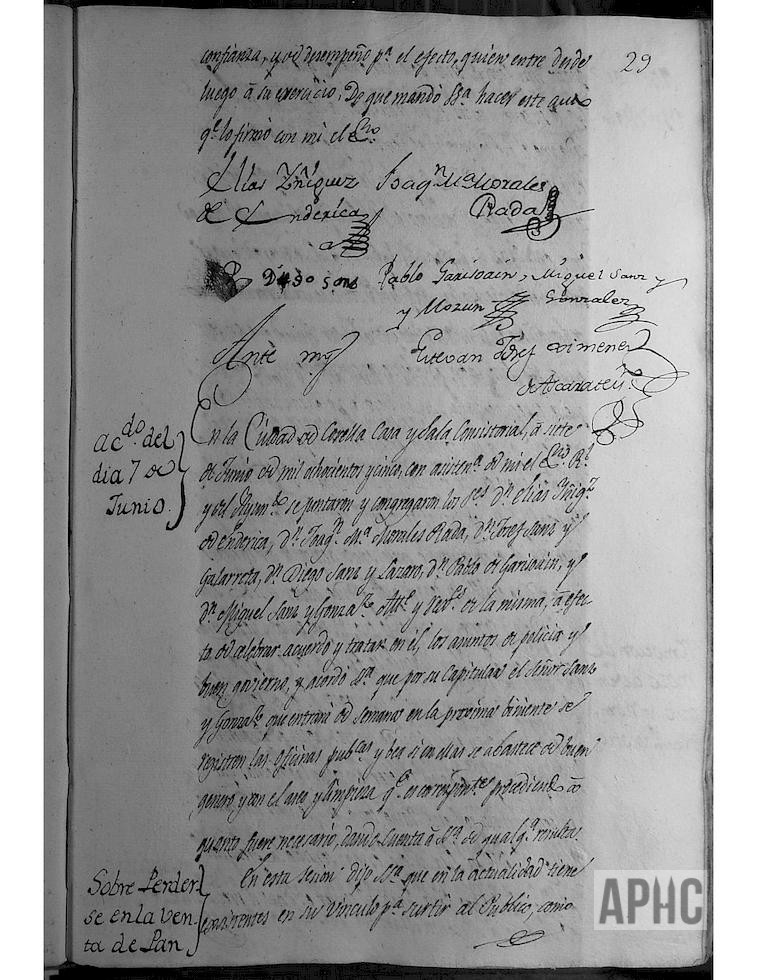 29
confianza, y de desempeño pª el efecto, quien entre desde
luego á su exercicio, Do que mandó Sª hacer este auto
qᵉ lo firmó con mi el Eⁿᵒ
Elias Yñiguez Joaqⁿ Mª Morales
de Enderica Rada
Diego Sanz Pablo Garisoain, Miguel Sanz y
y Gonzalez
Ante my Estevan Josef Ximenez
de Ascarate
acᵈᵒ del
dia 7 de
Junio.
En la Ciudad de Corella Casa y Sala Consistorial, á siete
de Junio de mil ochocientos y cinco, con asistenª de mi el Eⁿᵒ Rˡ
y del Ayunᵗᵒ se juntaron y congregaron los Sʳᵉˢ Dⁿ Elias Yñigᶻ
de Enderica, Dⁿ Joaqⁿ Mª Morales Rada, Dⁿ Josef Sanz y
Galarreta, Dⁿ Diego Sanz y Lazaro, Dⁿ Pablo de Garisoain, y
Dⁿ Miguel Sanz y Gonzaˡᵉᶻ y de la misma, á efec
to de celebrar acuerdo y tratar en él, los asuntos de policia y
buen govierno, y acordó Sª que por su Capitular el Señor Sanz
y Gonzaˡᵉᶻ que entrará de semana en la proxima biniente se
registren las oficinas pubᶜᵃˢ y bea si en ellas se abastece de buen
genero y con el aseo y limpieza qᵉ es correspondᵗᵉ procediendᵒ á
quanto fuere necesario, dando cuenta á Sª de qualqª resulta.
Sobre Perder
se en la ven
ta de Pan
En esta sesion dijo Sª que en la actualidad tiene
en su Vinculo pª surtir al Publico, como
APHC